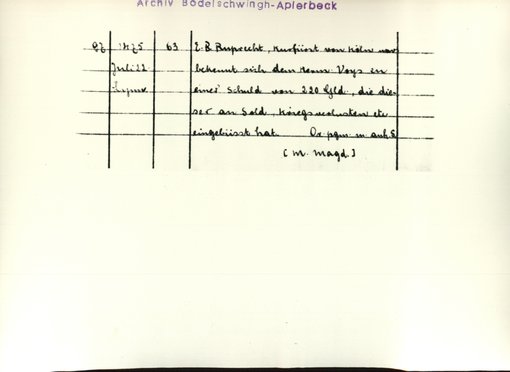 Archiv Bodelschwingh-Aplerbeck
97 1475 63 E.B. Ruprecht, Kurfürst von Köln
Juli 22 bekennt sich dem Herm. Voys in
einer Schuld von 220 Gld, die die-
ser an Sold, Kriegsverlusten etc
eingebüsst hat. Or pgm m anh. S
(M. Magd.)